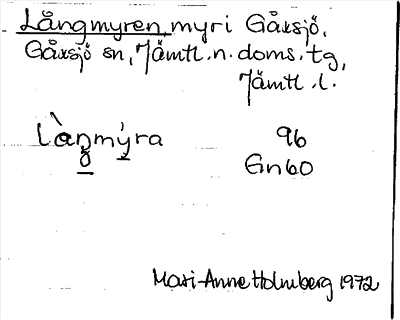 Långmyren, myr i Gåxsjö,
Gåxsjö sn, Jämtl. n. doms. tg,
Jämtl. l.
làŋmy̆ra 96
Gn60
Mari-Anne Holmberg 1972